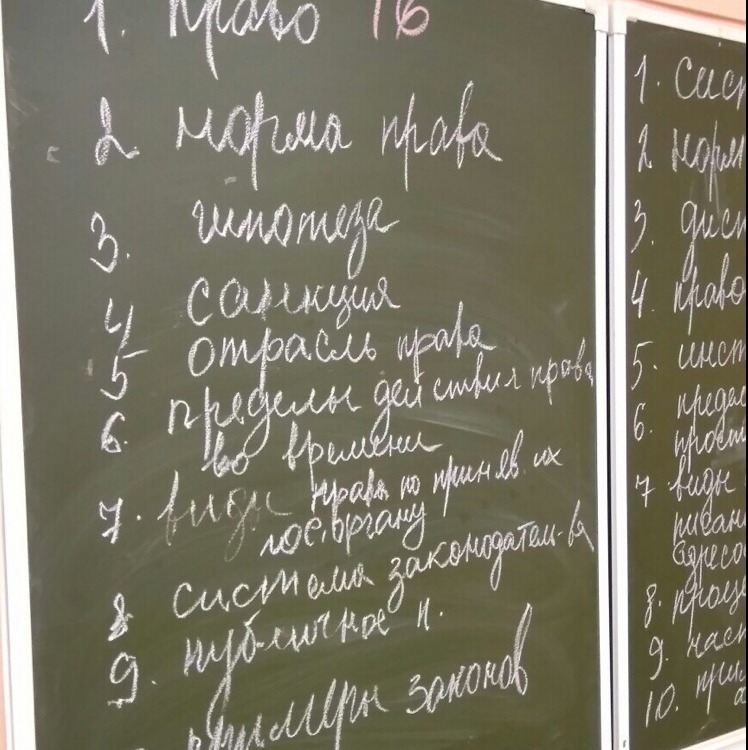 1. право 1б
2 норма права
3. гипотеза
4 санкция
5 отрасль права
6. пределы действия права
во времени
7. виды права по приняв. их
гос. органу
8 система законодател-ва
9. публичное п.
примеры законов
1. сист
2 норм
3. дисп
4. право
5. инст
6. предел
прост
7 виды
писан
адресо
8. проце
9. част
10. прим